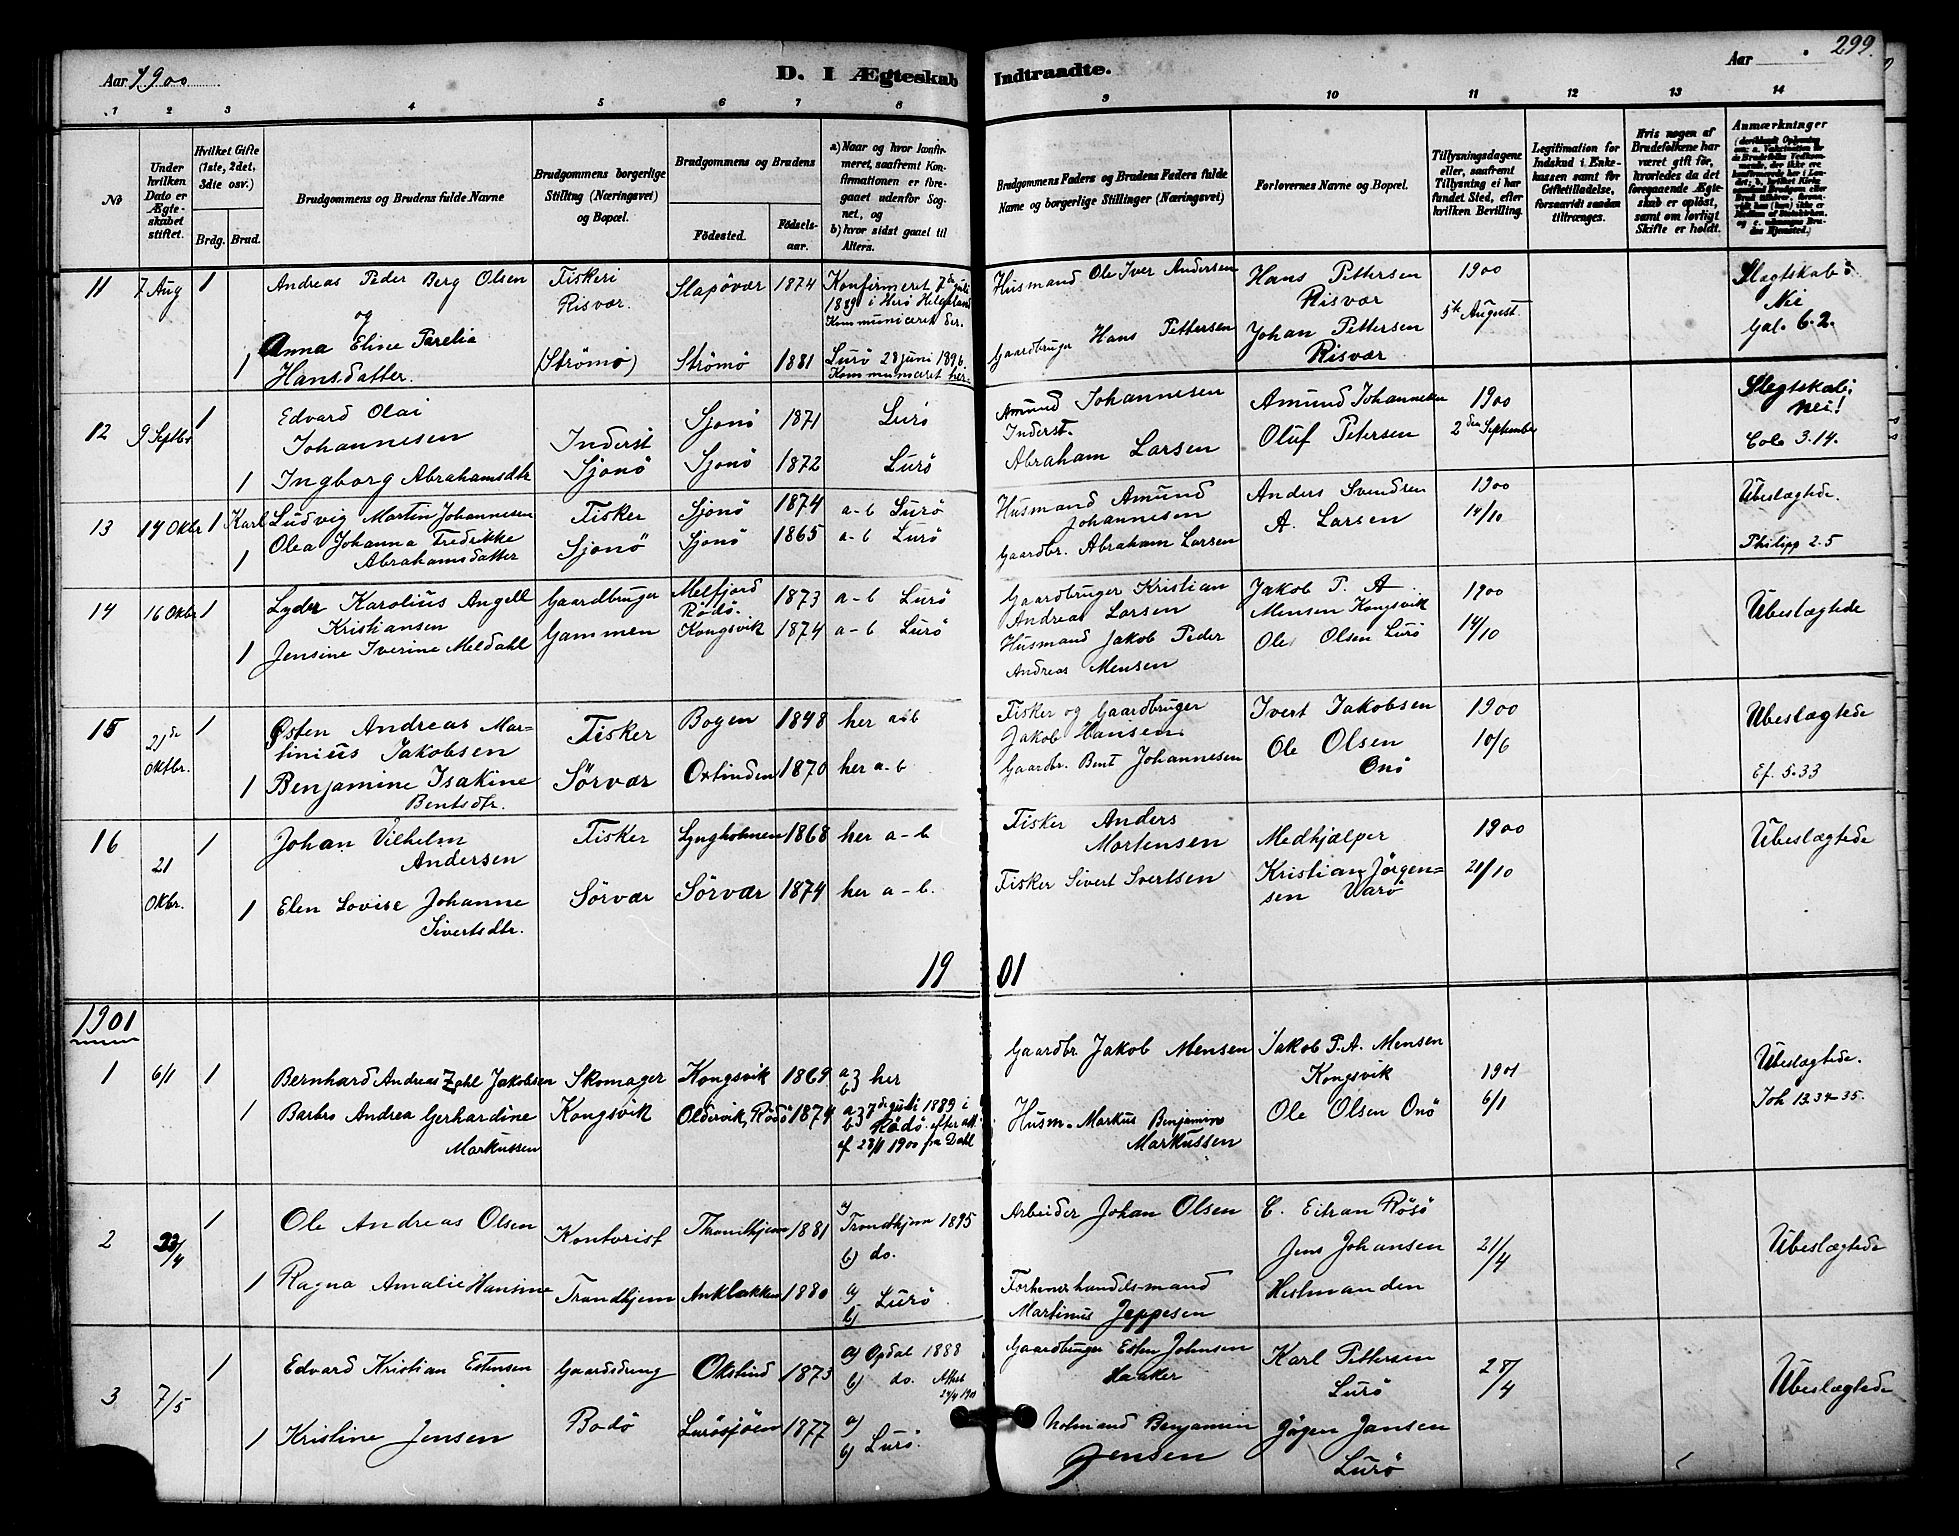 Aar 1900
D. I Ægteskab Indtraadte.
Aar
299.
1 2 3 4 5 6 7 8 9 10 11 12 13 14
No
Under hvilken Dato er Ægteskabet stiftet.
Hvilket Gifte (1ste, 2det, 3die osv.)
Brdg. Brud.
Brudgommens og Brudens fulde Navne
Brudgommens borgerlige Stilling (Næringsvei) og Bopæl.
Brudgommens og Brudens
Fødested. Fødsels-aar.
a) Naar og hvor konfirmeret, saafremt Konfirmationen er foregaaet udenfor Sognet, og
b) hvor sidst gaaet til Alters.
Brudgommens Faders og Brudens Faders fulde Navne og borgerlige Stillinger (Næringsvei)
Forlovernes Navne og Bopæl.
Tillysningsdagene eller, saafremt Tillysning ei har fundet Sted, efter hvilken Bevilling.
Legitimation for Indskud i Enkekassen samt for Giftetilladelse, forsaavidt saadan tiltrænges.
Hvis nogen af Brudefolkene har været gift før, hvorledes da det foregaaende Ægteskab er opløst, samt om lovligt Skifte er holdt.
Anmærkninger
11 7 Aug 1 Andreas Peder Berg Olsen Fiskeri Risvær. Slapøvær 1874 Konfirmeret 7de juli 1889 i Herø Helgeland Kommuniceret der. Husmand Ole Iver Andersen Hans Pettersen Risvær 1900 5te August Slegtskab: Nie Gal. 6.2.
og
1 Anna Eline Parelia Hansdatter. (Strömö) Strömö 1881 Lurö 28 juni 1896 Kommuniceret her. Gaardbruger Hans Pettersen Johan Pettersen Risvær
12 9 Septbr 1 Edvard Olai Johannesen Inderst Sjonö 1871 Lurö Amund Johannesen Inderst. Amund Johannesen 1900 2den September Slegtskab: nei! Colo 3.14.
1 Ingborg Abrahamsdtr Sjonö Sjonö 1872 Lurö Abraham Larsen Oluf Petersen
13 14 Oktbr 1 Karl Ludvig Martin Johannesen Fisker Sjonö 1874 a-b Lurö Husmand Amund Johannesen Anders Svendsen 1900 14/10 Ubeslægtede. Philipp 2.5
1 Olea Johanna Fredrikke Abrahamsdatter Sjonö Sjonö 1865 a-b Lurö Gaardbr. Abraham Larsen A. Larsen
14 16 Oktbr 1 Lyder Karolius Angell Kristiansen Gaardbruger Melfjord Rödö. 1873 a-b Lurö Gaardbruger Kristian Andreas Larsen Jakob P. A Mensen Kongsvik 1900 14/10 Ubeslægtede
1 Jensine Iverine Meldahl Gammen Kongsvik 1874 a-b Lurö Husmand Jakob Peder Andreas Mensen Ole Olsen Lurö
15 21de Oktbr. 1 Østen Andreas Martinius Jakobsen Fisker Bogen 1848 her a-b Fisker og Gaardbruger Jakob Hansen. Ivert Jakobsen 1900 10/6 Ubeslægtede Ef. 5.33
1 Benjamine Isakine Bentsdtr. Sörvær Oxtinden 1870 her a-b Gaardbr. Bent Johannesen Ole Olsen Onö
16 21 Oktbr. 1 Johan Vilhelm Andersen Fisker Lyngholmen 1868 her a-b Fisker Anders Mortensen Medhjælper 1900 21/10 Ubeslægtede
1 Elen Lovise Johanne Sivertsdtr. Sörvær Sörvær 1874 her a-b. Fisker Sivert Svertsen Kristian Jörgensen Varö
19 01
1901
1 6/1 1 Bernhard Andreas Zahl Jakobsen Skomager Kongsvik 1869 a b} her Gaardbr Jakob Mensen Jakob P.A. Mensen Kongsvik 1901 6/1 Ubeslægtede. Joh 13.34-35.
1 Barbro Andrea Gerhardine Markussen Kongsvik Oldervik, Rödö 1874 a b} 7de juli 1889 i Rödö. efter att. af 28/11 1900 fra Dahl Husm. Markus Benjamin Markussen Ole Olsen Onö
2 23/4 1 Ole Andreas Olsen Kontorist Throndhjem 1881 a) Trondhjem 1895 b) do. Arbeider Johan Olsen C. Eitran Rösö 21/4 Ubeslægtede
1 Ragna Amalie Hansine Trondhjem Anklakken 1880 a) b) Lurö Forhenv handelsmand Martinus Jeppesen Jens Johansen Hestmanden
3 7/5 1 Edvard Kristian Estensen Gaardsdreng Okstind 1873 a) Opdal 1888 b) do. Attest 24/4 1901 Gaardbruger Esten Johnsen Haaker Karl Pettersen Lurö 28/4 Ubeslægtede
1 Kristine Jensen Bodö Lurösjöen 1877 a) b) Lurö. Benjamin Jensen Jörgen Jansen Lurö